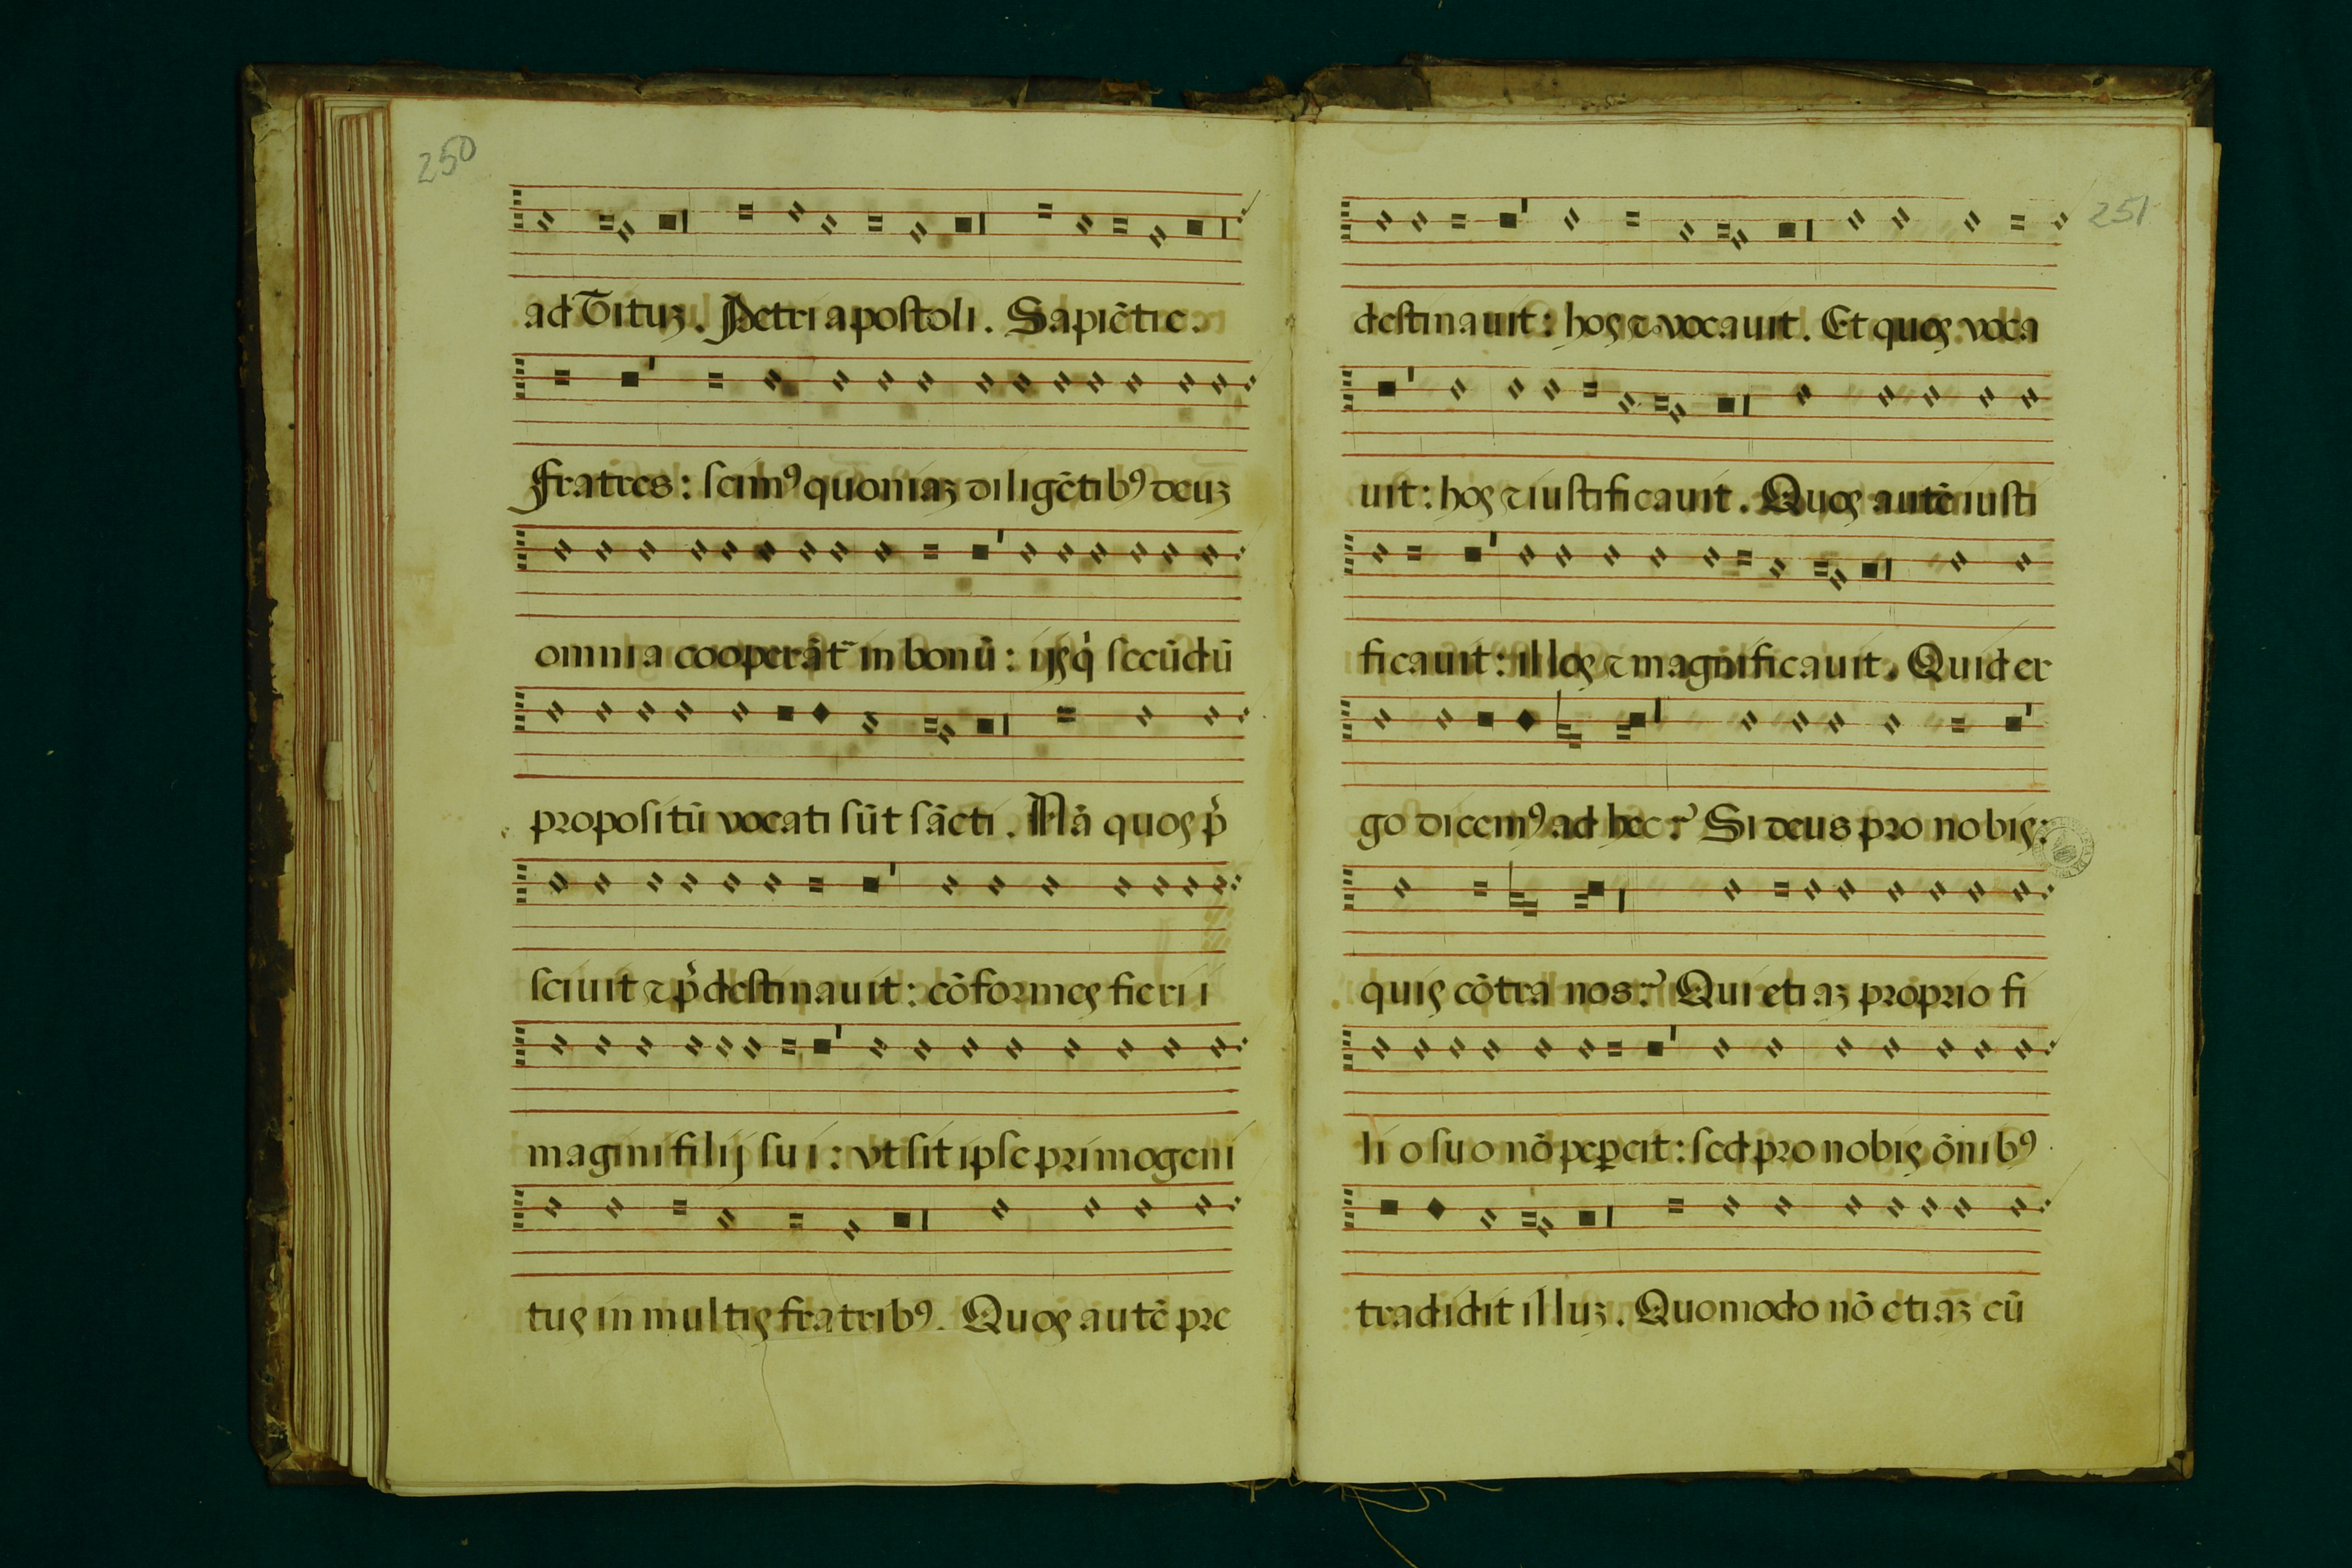 250
ad Tituʒ. Petri apostoli. Sapiẽtie.
Fratres: scimꝰ quoniaʒ diligẽtibꝰ deuʒ
omnia cooperãt᷑ in bonũ: ijs q̇ secũdũ
propositũ vocati sũt sãcti. Nã quos p̓
sciuit ⁊ p̓destinauit: cõformes fieri i
magini filij sui: vt sit ipse primogeni
tus in multis fratribꝰ. Quos autẽ pre
251
destinauit: hos ⁊ vocauit. Et quos voca
uit: hos ⁊ iustificauit. Quos autẽ iusti
ficauit: illos ⁊ magnificauit. Quid er
go dicemꝰ ad hec? Si deus pro nobis:
quis cõtra nos? Qui etiaʒ proprio fi
lio suo nõ peꝑcit: sed pro nobis õnibꝰ
tradidit illuʒ. Quomodo nõ etiaʒ cũ